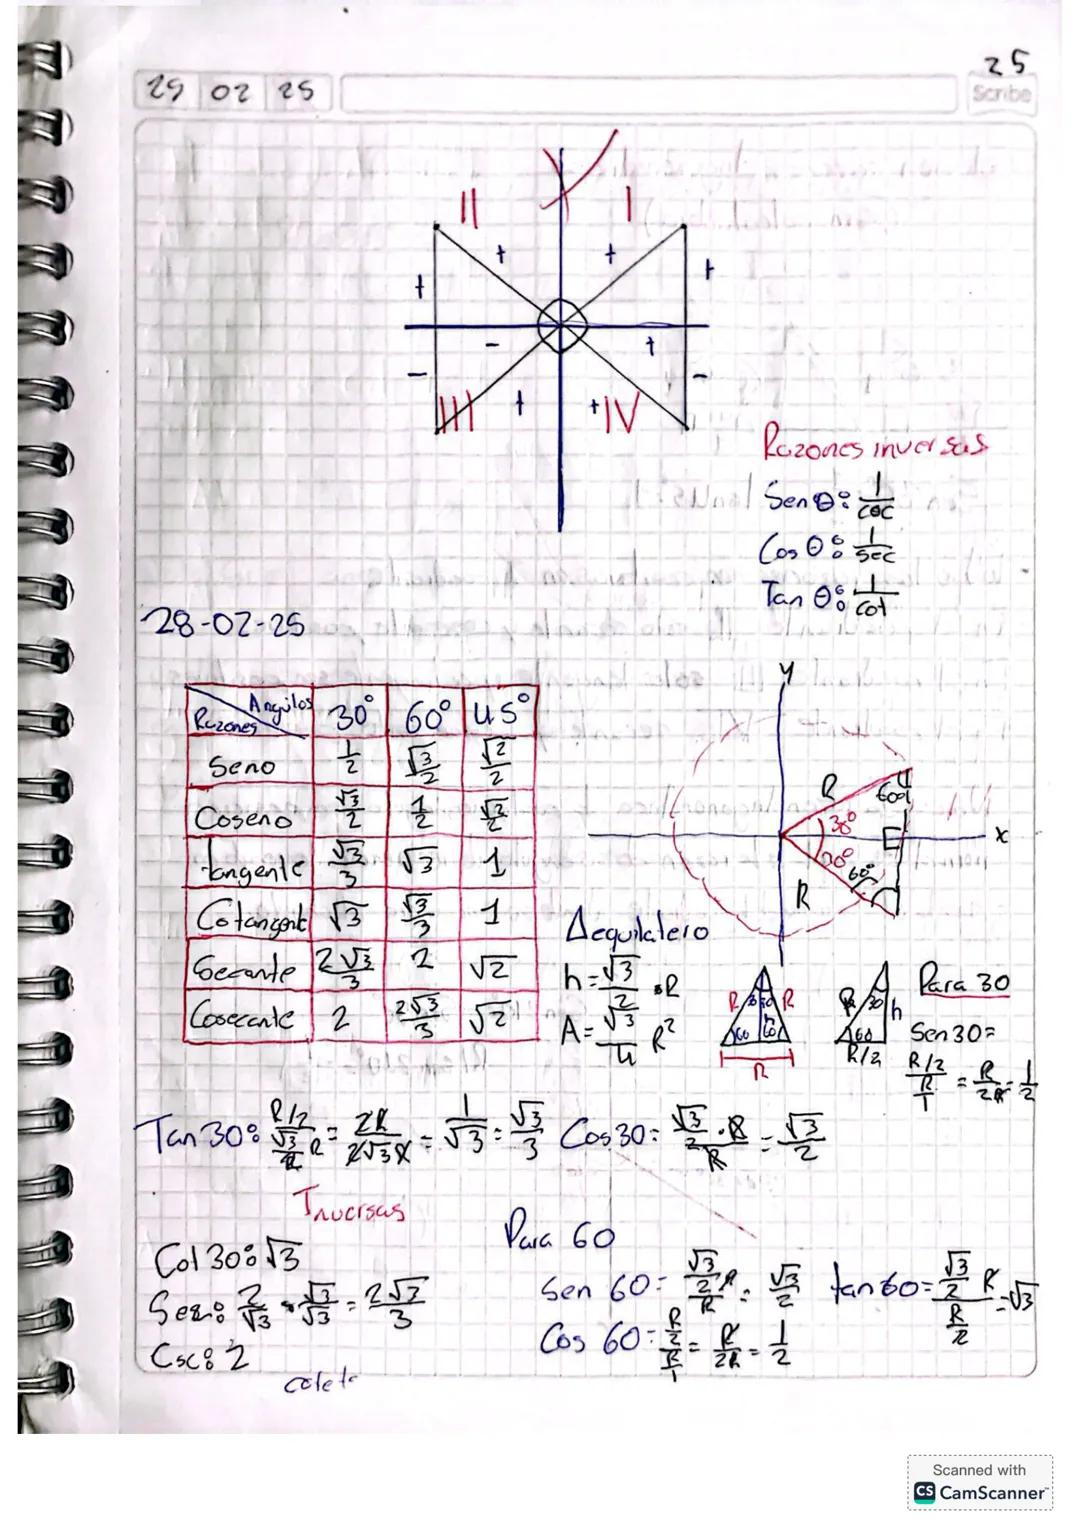 25
29 02 25
Scribe
II I
+ + + +
- +
- -
III + + IV
Razones inversas
Sen θ: 1/csc
Cos θ: 1/sec
Tan θ: 1/cot
28-02-25
Razones Angulos 30° 60° 45°
Seno 1/2 √3/2 √2/2
Coseno √3/2 1/2 √2/2
tangente √3/3 √3 1
Cotangent √3 √3/3 1
Secante 2√3/3 2 √2
Cosecante 2 2√3/3 √2
y
R 60°
30° x
30° 60°
R
Δequilatero
h = √3/2 · R
A = √3/4 R²
R 30 30 R
60 h 60
R
R 30 h
60
R/2
Para 30
Sen 30 =
R/2 / R/1 = R/2R = 1/2
Tan 30: R/2 / √3/2 R = 2R/2√3R = 1/√3 = √3/3 Cos 30 = √3/2 · R / R = √3/2
Inversas
Cot 30: √3
Sec: 2/√3 · √3/√3 = 2√3/3
Csc: 2
Para 60
Sen 60 = √3/2 R / R = √3/2 tan 60 = √3/2 R / R/2 = √3
Cos 60 = R/2 / R/1 = R/2R = 1/2
Scanned with
CS CamScanner